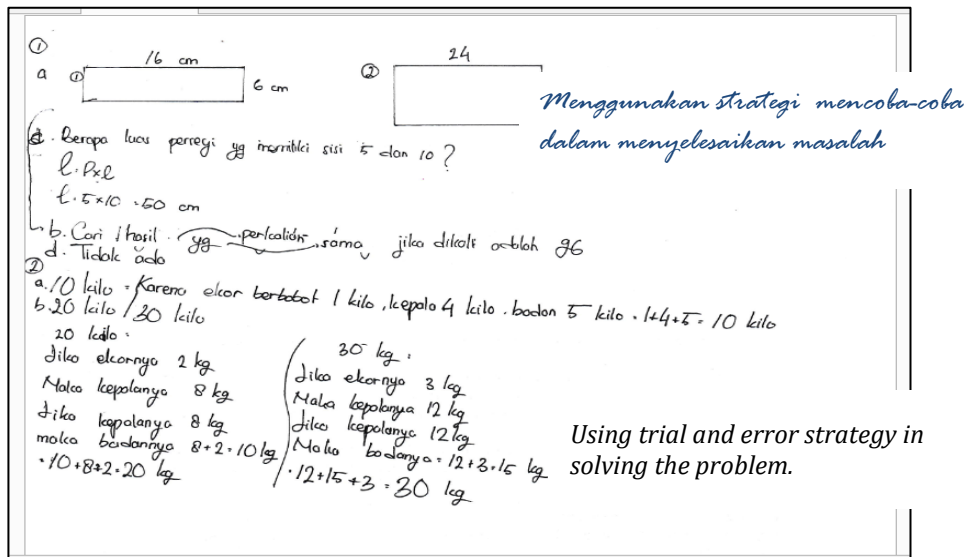 ①
a ① 16 cm 6 cm ② 24
Menggunakan strategi mencoba-coba
dalam menyelesaikan masalah
. Berapa luas persegi yg memiliki sisi 5 dan 10 ?
l. P×l
l. 5×10 = 50 cm
b. Cari hasil yg perkalian sama, jika dikali adalah 96
d. Tidak ada
②
a. 10 kilo = Karena ekor berbobot 1 kilo, kepala 4 kilo, badan 5 kilo. 1+4+5 = 10 kilo
b. 20 kilo / 30 kilo
20 kilo :
Jika ekornya 2 kg
Maka kepalanya 8 kg
Jika kepalanya 8 kg
maka badannya 8+2=10 kg
. 10+8+2=20 kg
30 kg .
Jika ekornya 3 kg
Maka kepalanya 12 kg
Jika kepalanya 12 kg
Maka badanya = 12+3=15 kg
. 12+15+3 = 30 kg
Using trial and error strategy in
solving the problem.